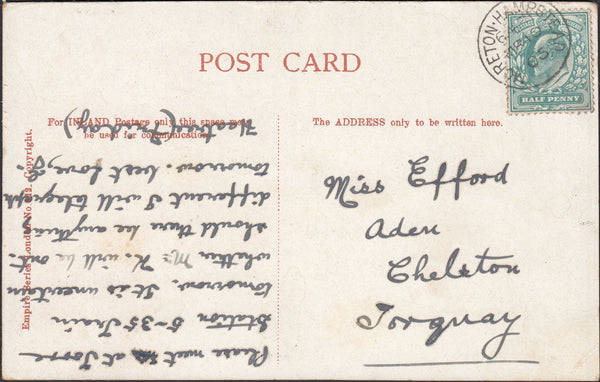 POST CARD
For INLAND Postage only this space may
be used for communication.
The ADDRESS only to be written here.
HALF PENNY
Miss Efford
Aden
Chelston
Torquay
Please meet me at Torre
Station 5-35 Train
tomorrow. It is uncertain
whether Mr K. will be out.
should there be anything
different I will telegraph
tomorrow. best love,
Heatree (Friday)
Empire Series London No
Copyright.